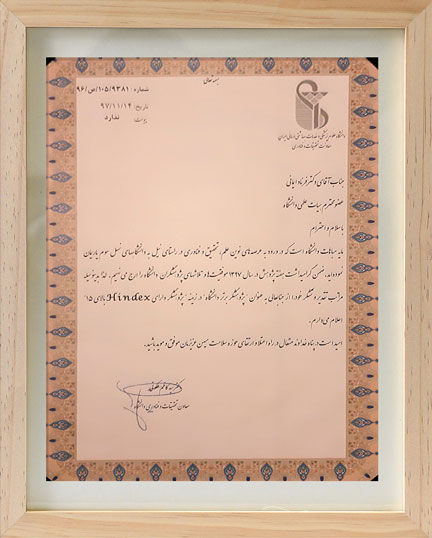 بسمه تعالی
شماره: ۹۶/ص/۱۰۵/۹۳۸۱
تاریخ: ۹۷/۱۱/۱۴
پیوست: ندارد
دانشگاه علوم پزشکی و خدمات بهداشتی درمانی ایران
معاونت تحقیقات و فناوری
جناب آقای دکتر فرناد ایمانی
عضو محترم هیات علمی دانشگاه
با سلام و احترام
مایه مباهات دانشگاه است که در ورود به عرصه‌های نوین علم، تحقیق و فناوری در راستای نیل به دانشگاه‌های نسل سوم یاریمان
نموده‌اید. ضمن گرامیداشت هفته پژوهش در سال ۱۳۹۷ موفقیت‌ها و تلاشهای پژوهشگران دانشگاه را ارج می‌نهیم. لذا بدینوسیله
مراتب تقدیر و تشکر خود را از جنابعالی به عنوان "پژوهشگر برتر دانشگاه" در زمینه "پژوهشگر دارای Hindex بالای ۱۵"
اعلام می‌دارم.
امید است در پناه خداوند متعال در راه اعتلا و ارتقای حوزه سلامت میهن عزیزمان موفق و موید باشید.
معاون تحقیقات و فناوری دانشگاه